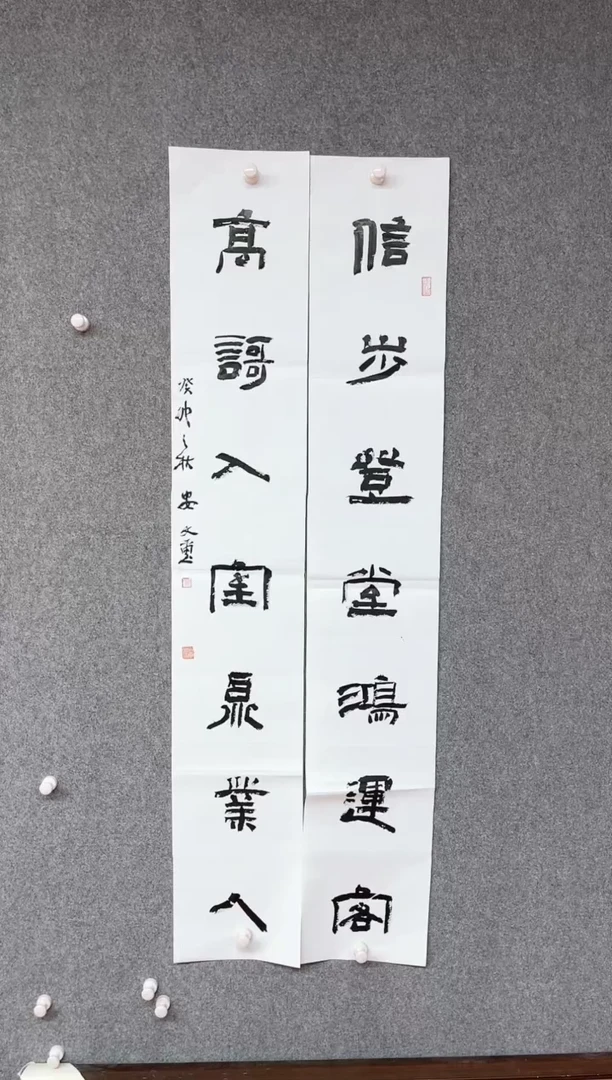 信步登堂鴻運客
高謌入室鼎業人
癸卯之秋 安文重